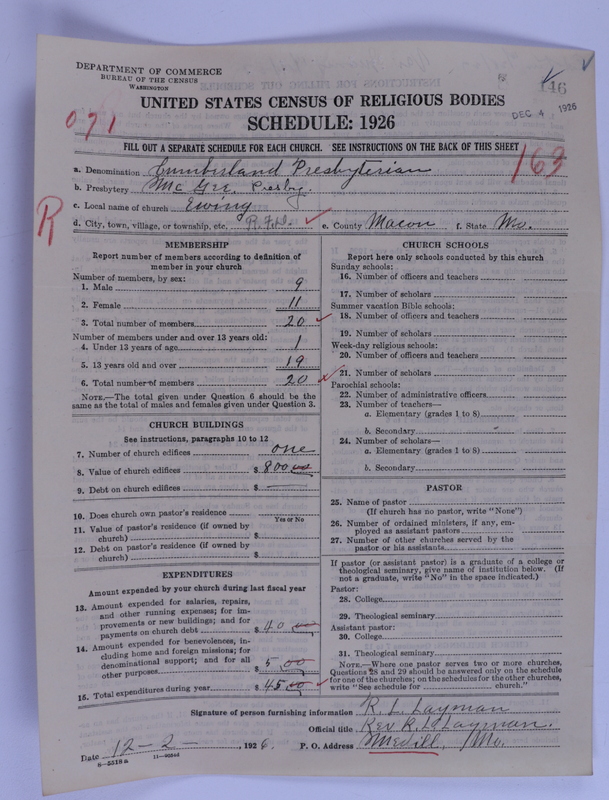 DEPARTMENT OF COMMERCE
BUREAU OF THE CENSUS
WASHINGTON
146
DEC 4 1926
UNITED STATES CENSUS OF RELIGIOUS BODIES
SCHEDULE: 1926
071
FILL OUT A SEPARATE SCHEDULE FOR EACH CHURCH. SEE INSTRUCTIONS ON THE BACK OF THIS SHEET
163
a. Denomination Cumberland Presbyterian
b. Presbytery McGee Presby.
c. Local name of church Ewing
R
d. City, town, village, or township, etc. R.F.D. e. County Macon f. State Mo.
MEMBERSHIP
Report number of members according to definition of
member in your church
Number of members, by sex:
1. Male 9
2. Female 11
3. Total number of members 20
Number of members under and over 13 years old:
4. Under 13 years of age 1
5. 13 years old and over 19
6. Total number of members 20
NOTE.—The total given under Question 6 should be
same as the total of males and females given under Question 3.
CHURCH BUILDINGS
See instructions, paragraphs 10 to 12
7. Number of church edifices one
8. Value of church edifices $ 800 00
9. Debt on church edifices $ —
10. Does church own pastor's residence
Yes or No
11. Value of pastor's residence (if owned by
church) $
12. Debt on pastor's residence (if owned by
church) $
EXPENDITURES
Amount expended by your church during last fiscal year
13. Amount expended for salaries, repairs,
and other running expenses; for im-
provements or new buildings; and for
payments on church debt $ 40 00
14. Amount expended for benevolences, in-
cluding home and foreign missions; for
denominational support; and for all
other purposes $ 5 00
15. Total expenditures during year $ 45 00
CHURCH SCHOOLS
Report here only schools conducted by this church
Sunday schools:
16. Number of officers and teachers
17. Number of scholars
Summer vacation Bible schools:
18. Number of officers and teachers
19. Number of scholars
Week-day religious schools:
20. Number of officers and teachers
21. Number of scholars
Parochial schools:
22. Number of administrative officers
23. Number of teachers—
a. Elementary (grades 1 to 8)
b. Secondary
24. Number of scholars—
a. Elementary (grades 1 to 8)
b. Secondary
PASTOR
25. Name of pastor
(If church has no pastor, write "None")
26. Number of ordained ministers, if any, em-
ployed as assistant pastors
27. Number of other churches served by the
pastor or his assistants
If pastor (or assistant pastor) is a graduate of a college or
theological seminary, give name of institution below. (If
not a graduate, write "No" in the space indicated.)
Pastor:
28. College
29. Theological seminary
Assistant pastor:
30. College
31. Theological seminary
NOTE.—Where one pastor serves two or more churches,
Questions 28 and 29 should be answered only on the schedule
for one of the churches; on the schedules for the other churches,
write "See schedule for church."
Signature of person furnishing information R. L. Layman
Official title Rev R. L. Layman.
Date 12-2-, 1926. P. O. Address Medill, Mo.
8-5518a